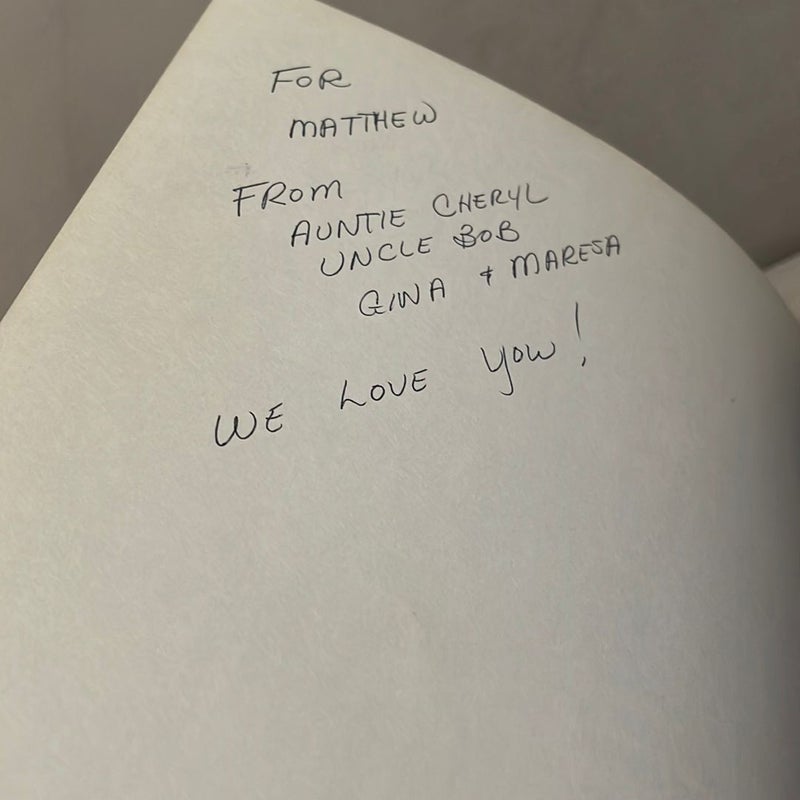 FOR
MATTHEW
FROM
AUNTIE CHERYL
UNCLE BOB
GINA + MARESA
WE LOVE YOU!